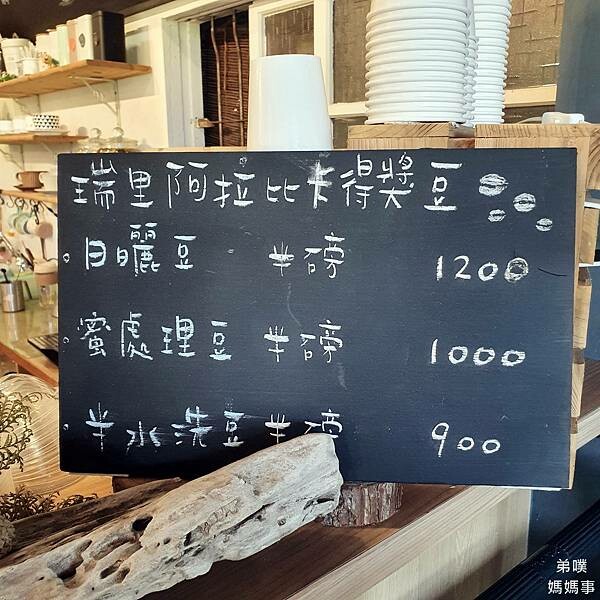 瑞里阿拉比卡得獎豆
日曬豆 半磅 1200
蜜處理豆 半磅 1000
半水洗豆 半磅 900
弟噗
媽媽事